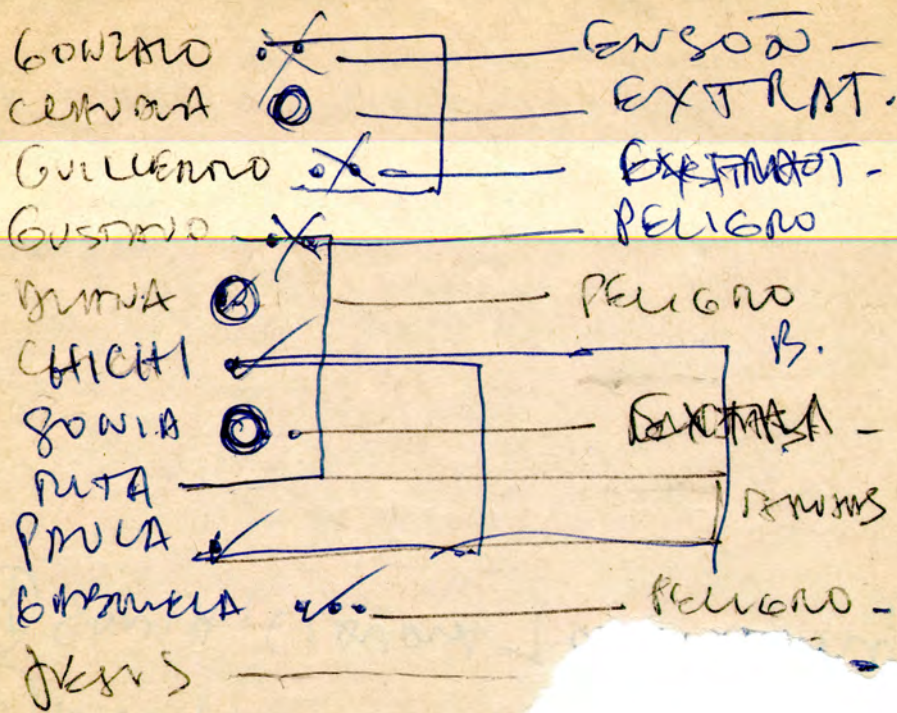 GONZALO ENSOÑ -
CLAUDIA EXTRAT.
GUILLERMO
GUSTAVO PELIGRO
DIANA PELIGRO
CHICHI B.
SONIA
RITA
PAULA
GABRIELA PELIGRO -
JESUS